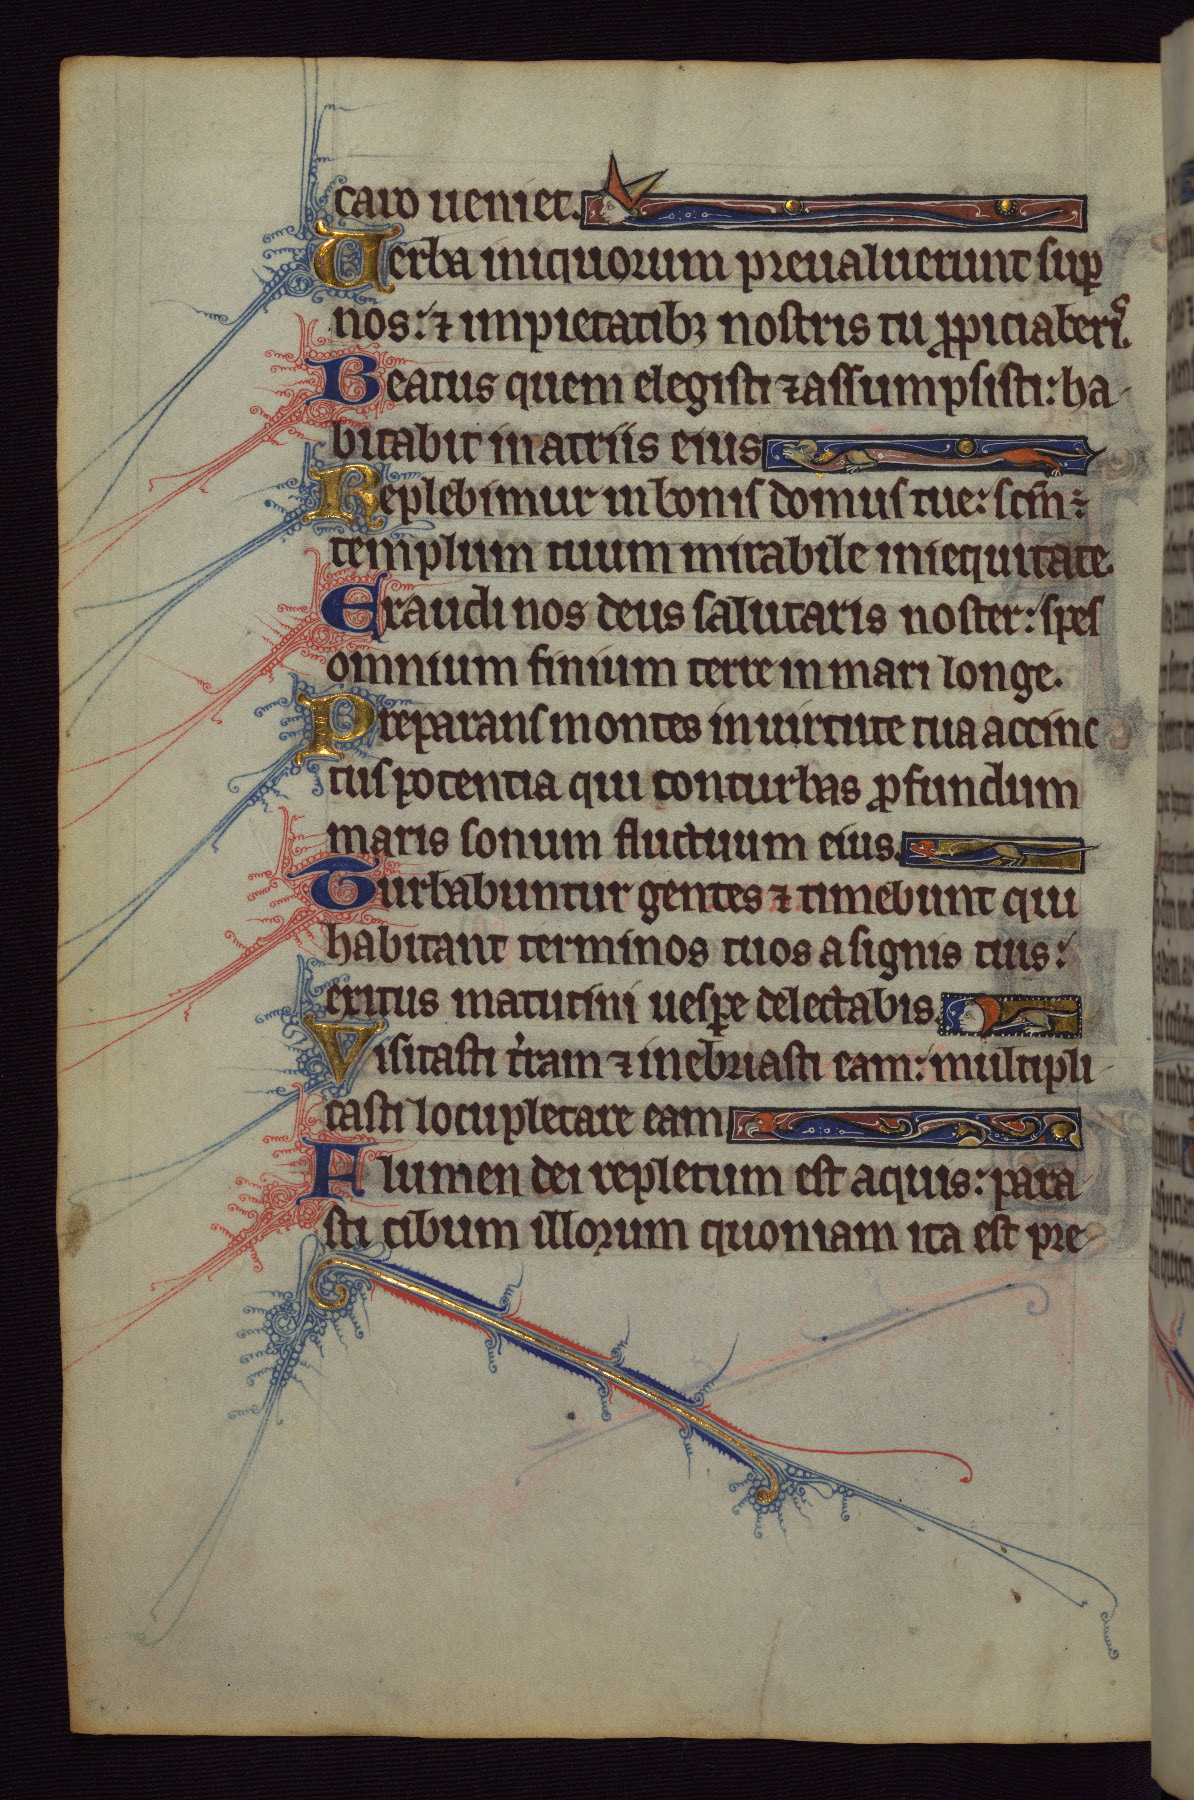 caro ueniet.
Uerba iniquorum preualuerunt sup̲
nos: ⁊ impietatibꝫ nostris tu ꝓpiciaberis̉.
Beatus quem elegisti ⁊ assumpsisti: ha-
bitabit in atriis eius
Replebimur in bonis domus tue: scm̄ ⁊
templum tuum mirabile in equitate.
Exaudi nos deus salutaris noster: spes
omnium finium terre in mari longe.
Preparans montes in uirtute tua accinc
tus potentia qui conturbas ꝓfundum
maris sonum fluctuum eius.
Turbabuntur gentes ⁊ timebunt qui
habitant terminos tuos a signis tuis:
exitus matutini uespe delectabis.
Visitasti t̉ram ⁊ inebriasti eam: multipli-
casti locupletare eam
Flumen dei repletum est aquis: para-
sti cibum illorum quoniam ita est pre-